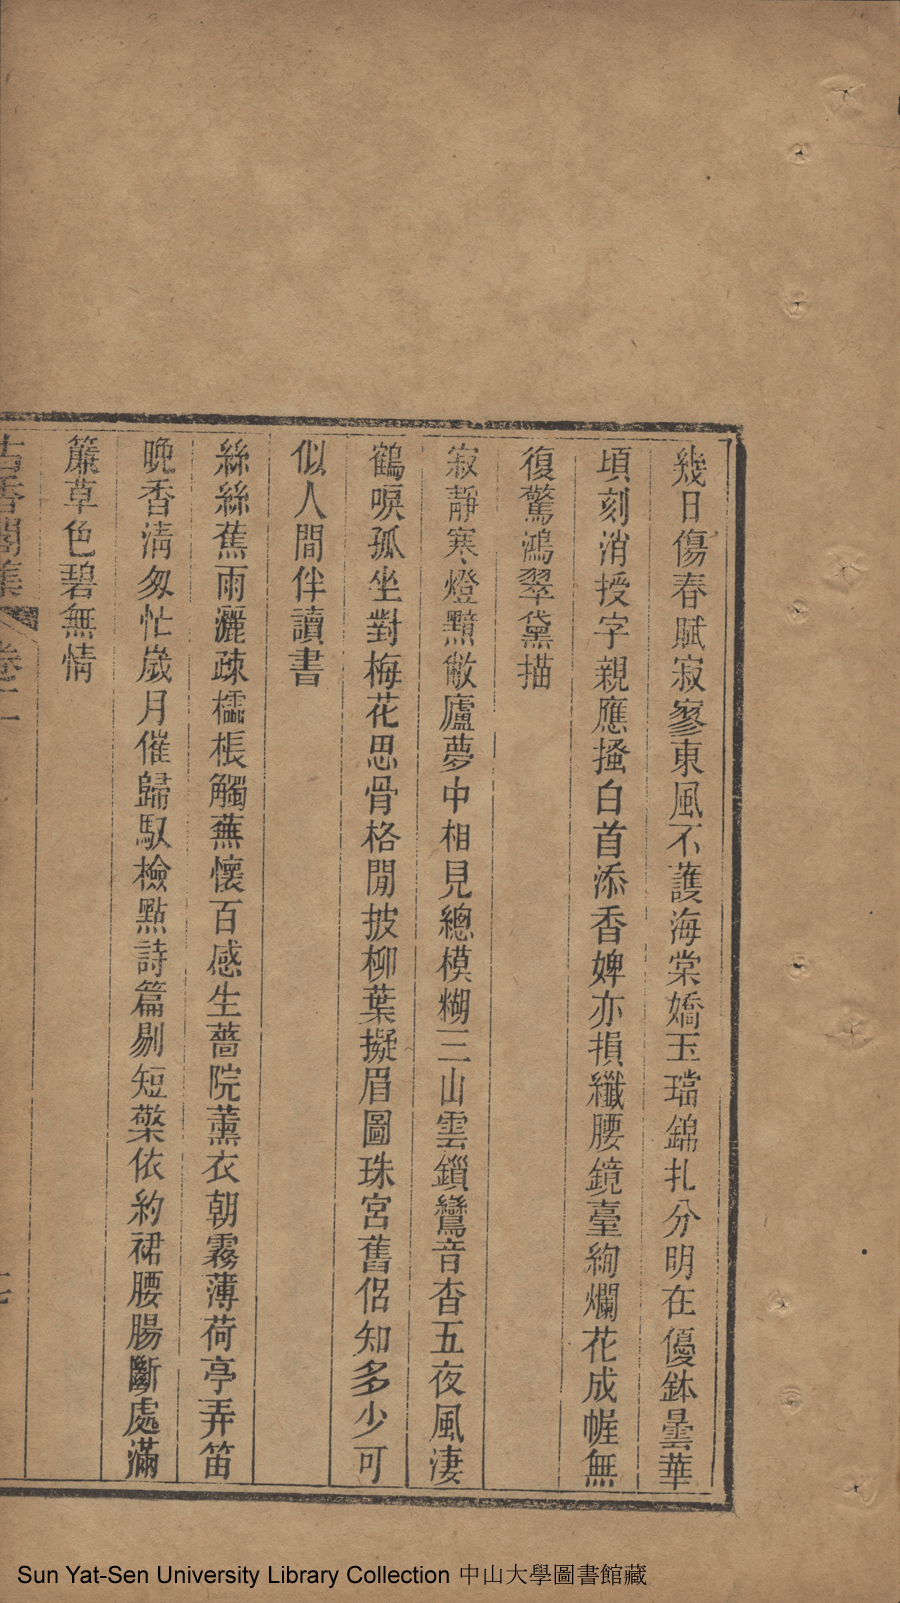 幾日傷春賦寂寥東風不護海棠嬌玉璫錦札分明在優鉢曇華
頃刻消授字親應搔白首添香婢亦損纖腰鏡臺絢爛花成幄無
復驚鴻翠黛描
寂靜寒燈黯敝廬夢中相見總模糊三山雲鎖鸞音杳五夜風淒
鶴唳孤坐對梅花思骨格閒披柳葉擬眉圖珠宮舊侶知多少可
似人間伴讀書
絲絲蕉雨灑疎櫺棖觸蕪懷百感生薔院薰衣朝霧薄荷亭弄笛
晚香清匆忙歲月催歸馭檢點詩篇剔短檠依約裙腰腸斷處滿
簾草色碧無情
古香閣集 卷二
Sun Yat-Sen University Library Collection 中山大學圖書館藏